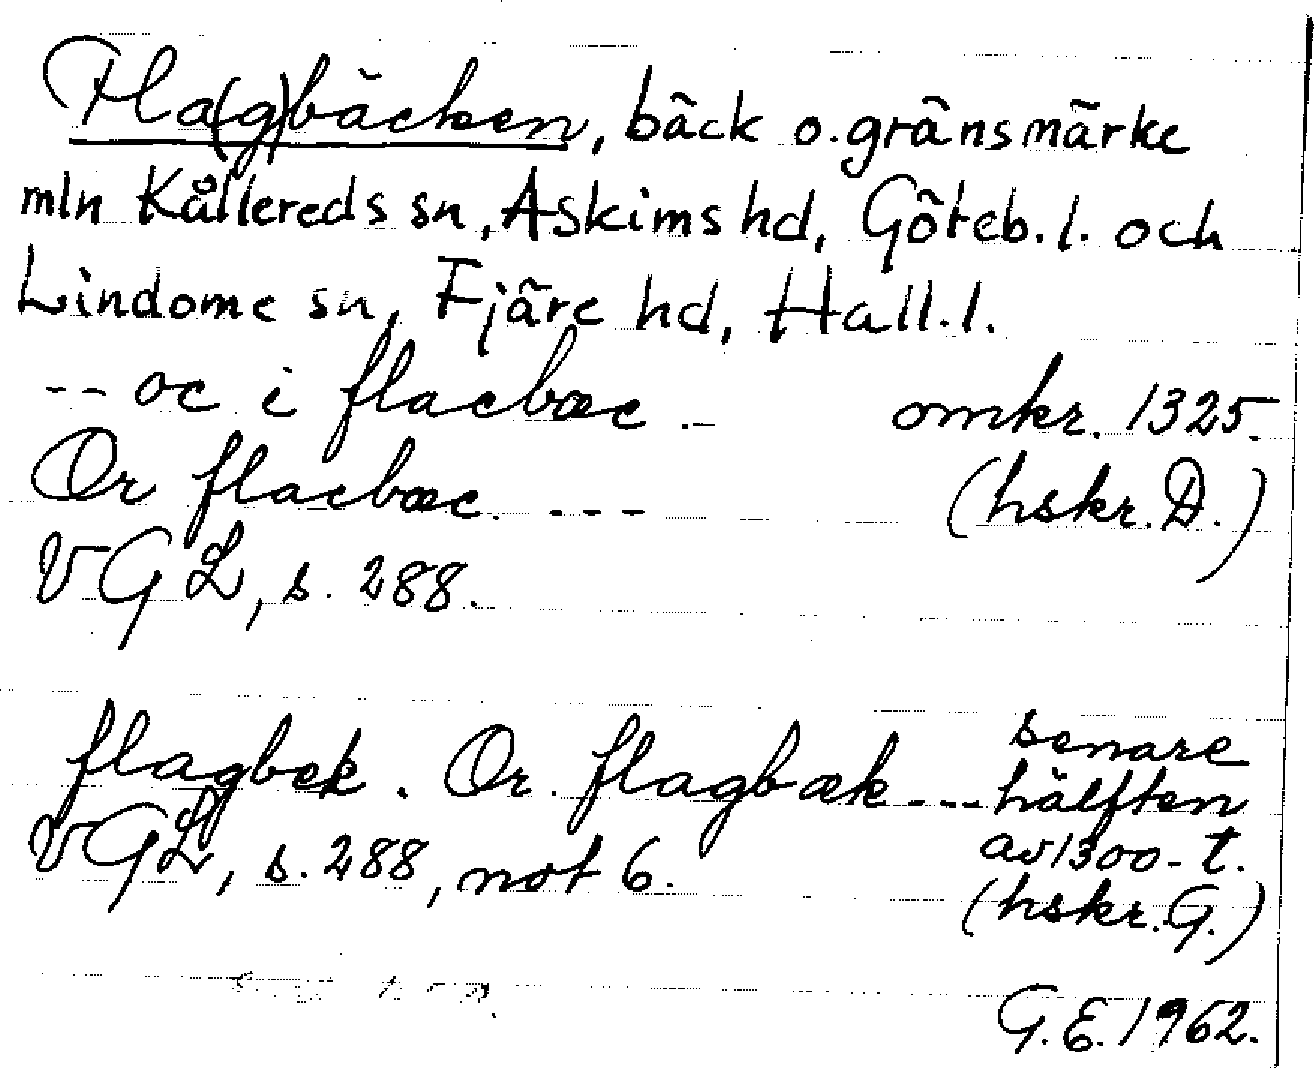 Fla(g)bäcken, bäck o. gränsmärke
mln Kållereds sn, Askims hd, Göteb. l. och
Lindome sn, Fjäre hd, Hall. l.
-- oc i flacbæc -- omkr. 1325.
Or flacbæc. --- (hskr. D.)
VGL, s. 288.
flagbek. Or flagbæk --- senare
hälften
av 1300-t.
VGL, s. 288, not 6.
(hskr. G.)
G. E. 1962.